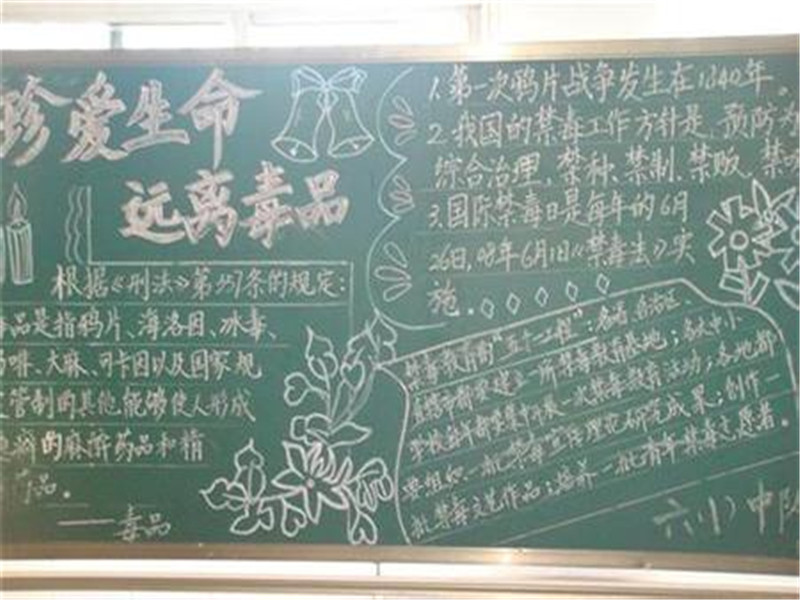 珍爱生命
远离毒品
根据《刑法》第357条的规定:
品是指鸦片、海洛因、冰毒、
啡、大麻、可卡因以及国家规
管制的其他能够使人形成
的麻醉药品和精
药品。
——毒品
1.第一次鸦片战争发生在1840年。
2.我国的禁毒工作方针是,预防为
综合治理、禁种、禁制、禁贩、禁
3.国际禁毒日是每年的6月
26日,08年6月1日《禁毒法》实
施。
禁毒教育的“五个一工程”:各省、自治区、
直辖市都要建立一所禁毒教育基地;各大中小
学校每年都要集中开展一次禁毒教育活动;各地都
要组织一批禁毒宣传理论研究成果;创作一
批禁毒文艺作品;培养一批青年禁毒志愿者。
六(1)中队